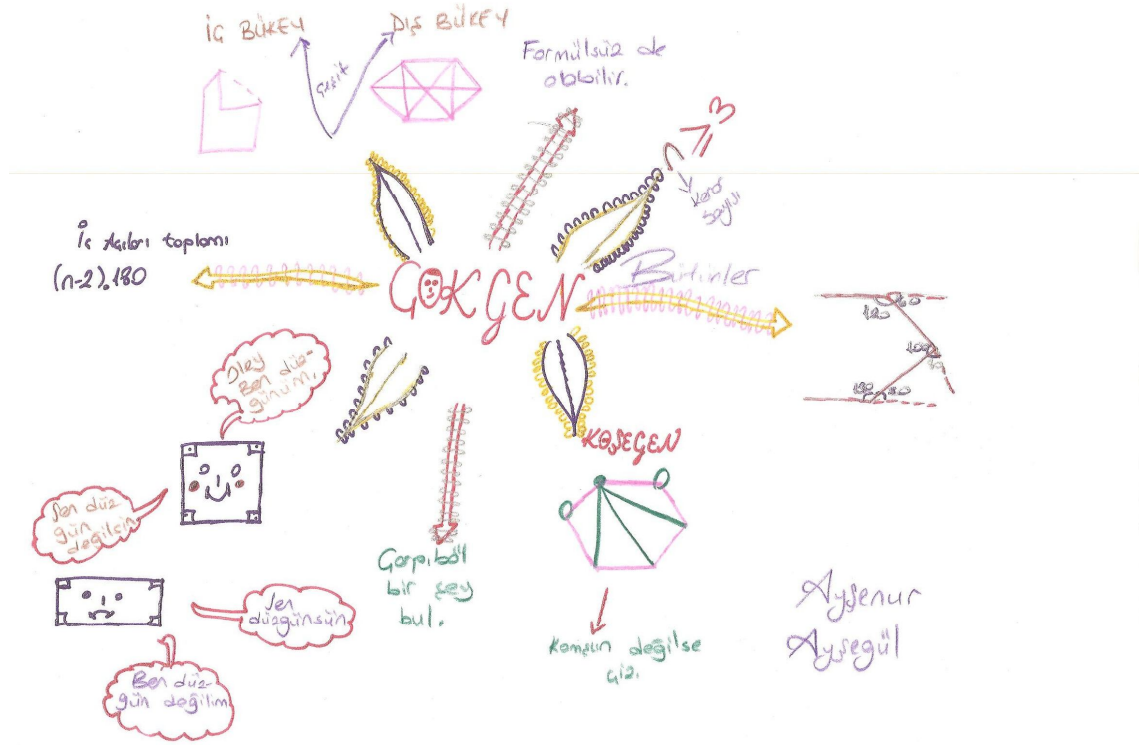 İÇ BÜKEY
DIŞ BÜKEY
Çeşit
Formülsüz de
olabilir.
n ≥ 3
kenar
sayısı
İç Açıları toplamı
(n-2).180
ÇOKGEN
Bütünler
120 60
100
80
130 50
Oley
Ben düz-
günüm.
Sen düz
gün
değilsin
Sen
düzgünsün
Ben düz-
gün değilim
Çarp, böl
bir şey
bul.
KÖŞEGEN
Komşun değilse
çiz.
Ayşenur
Ayşegül